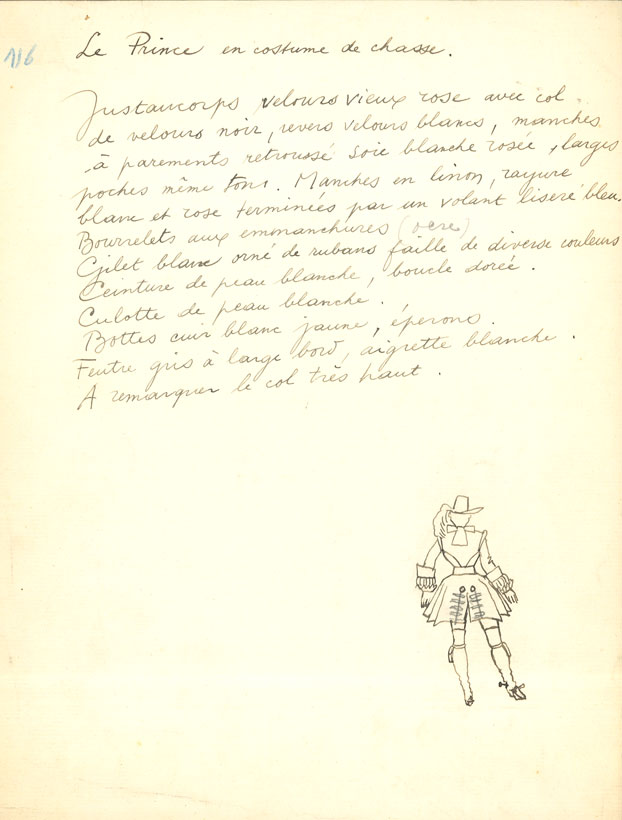 116
Le Prince en costume de chasse.
Justaucorps velours vieux rose avec col
de velours noir, revers velours blancs, manches
à parements retroussé soie blanche rosée, larges
poches même tons. Manches en linon, rayure
blanc et rose terminées par un volant liseré bleu.
Bourrelets aux emmanchures (ocre)
Gilet blanc orné de rubans faille de diverse couleurs
Ceinture de peau blanche, boucle dorée.
Culotte de peau blanche.
Bottes cuir blanc jaune, éperons.
Feutre gris à large bord, aigrette blanche.
A remarquer le col très haut.